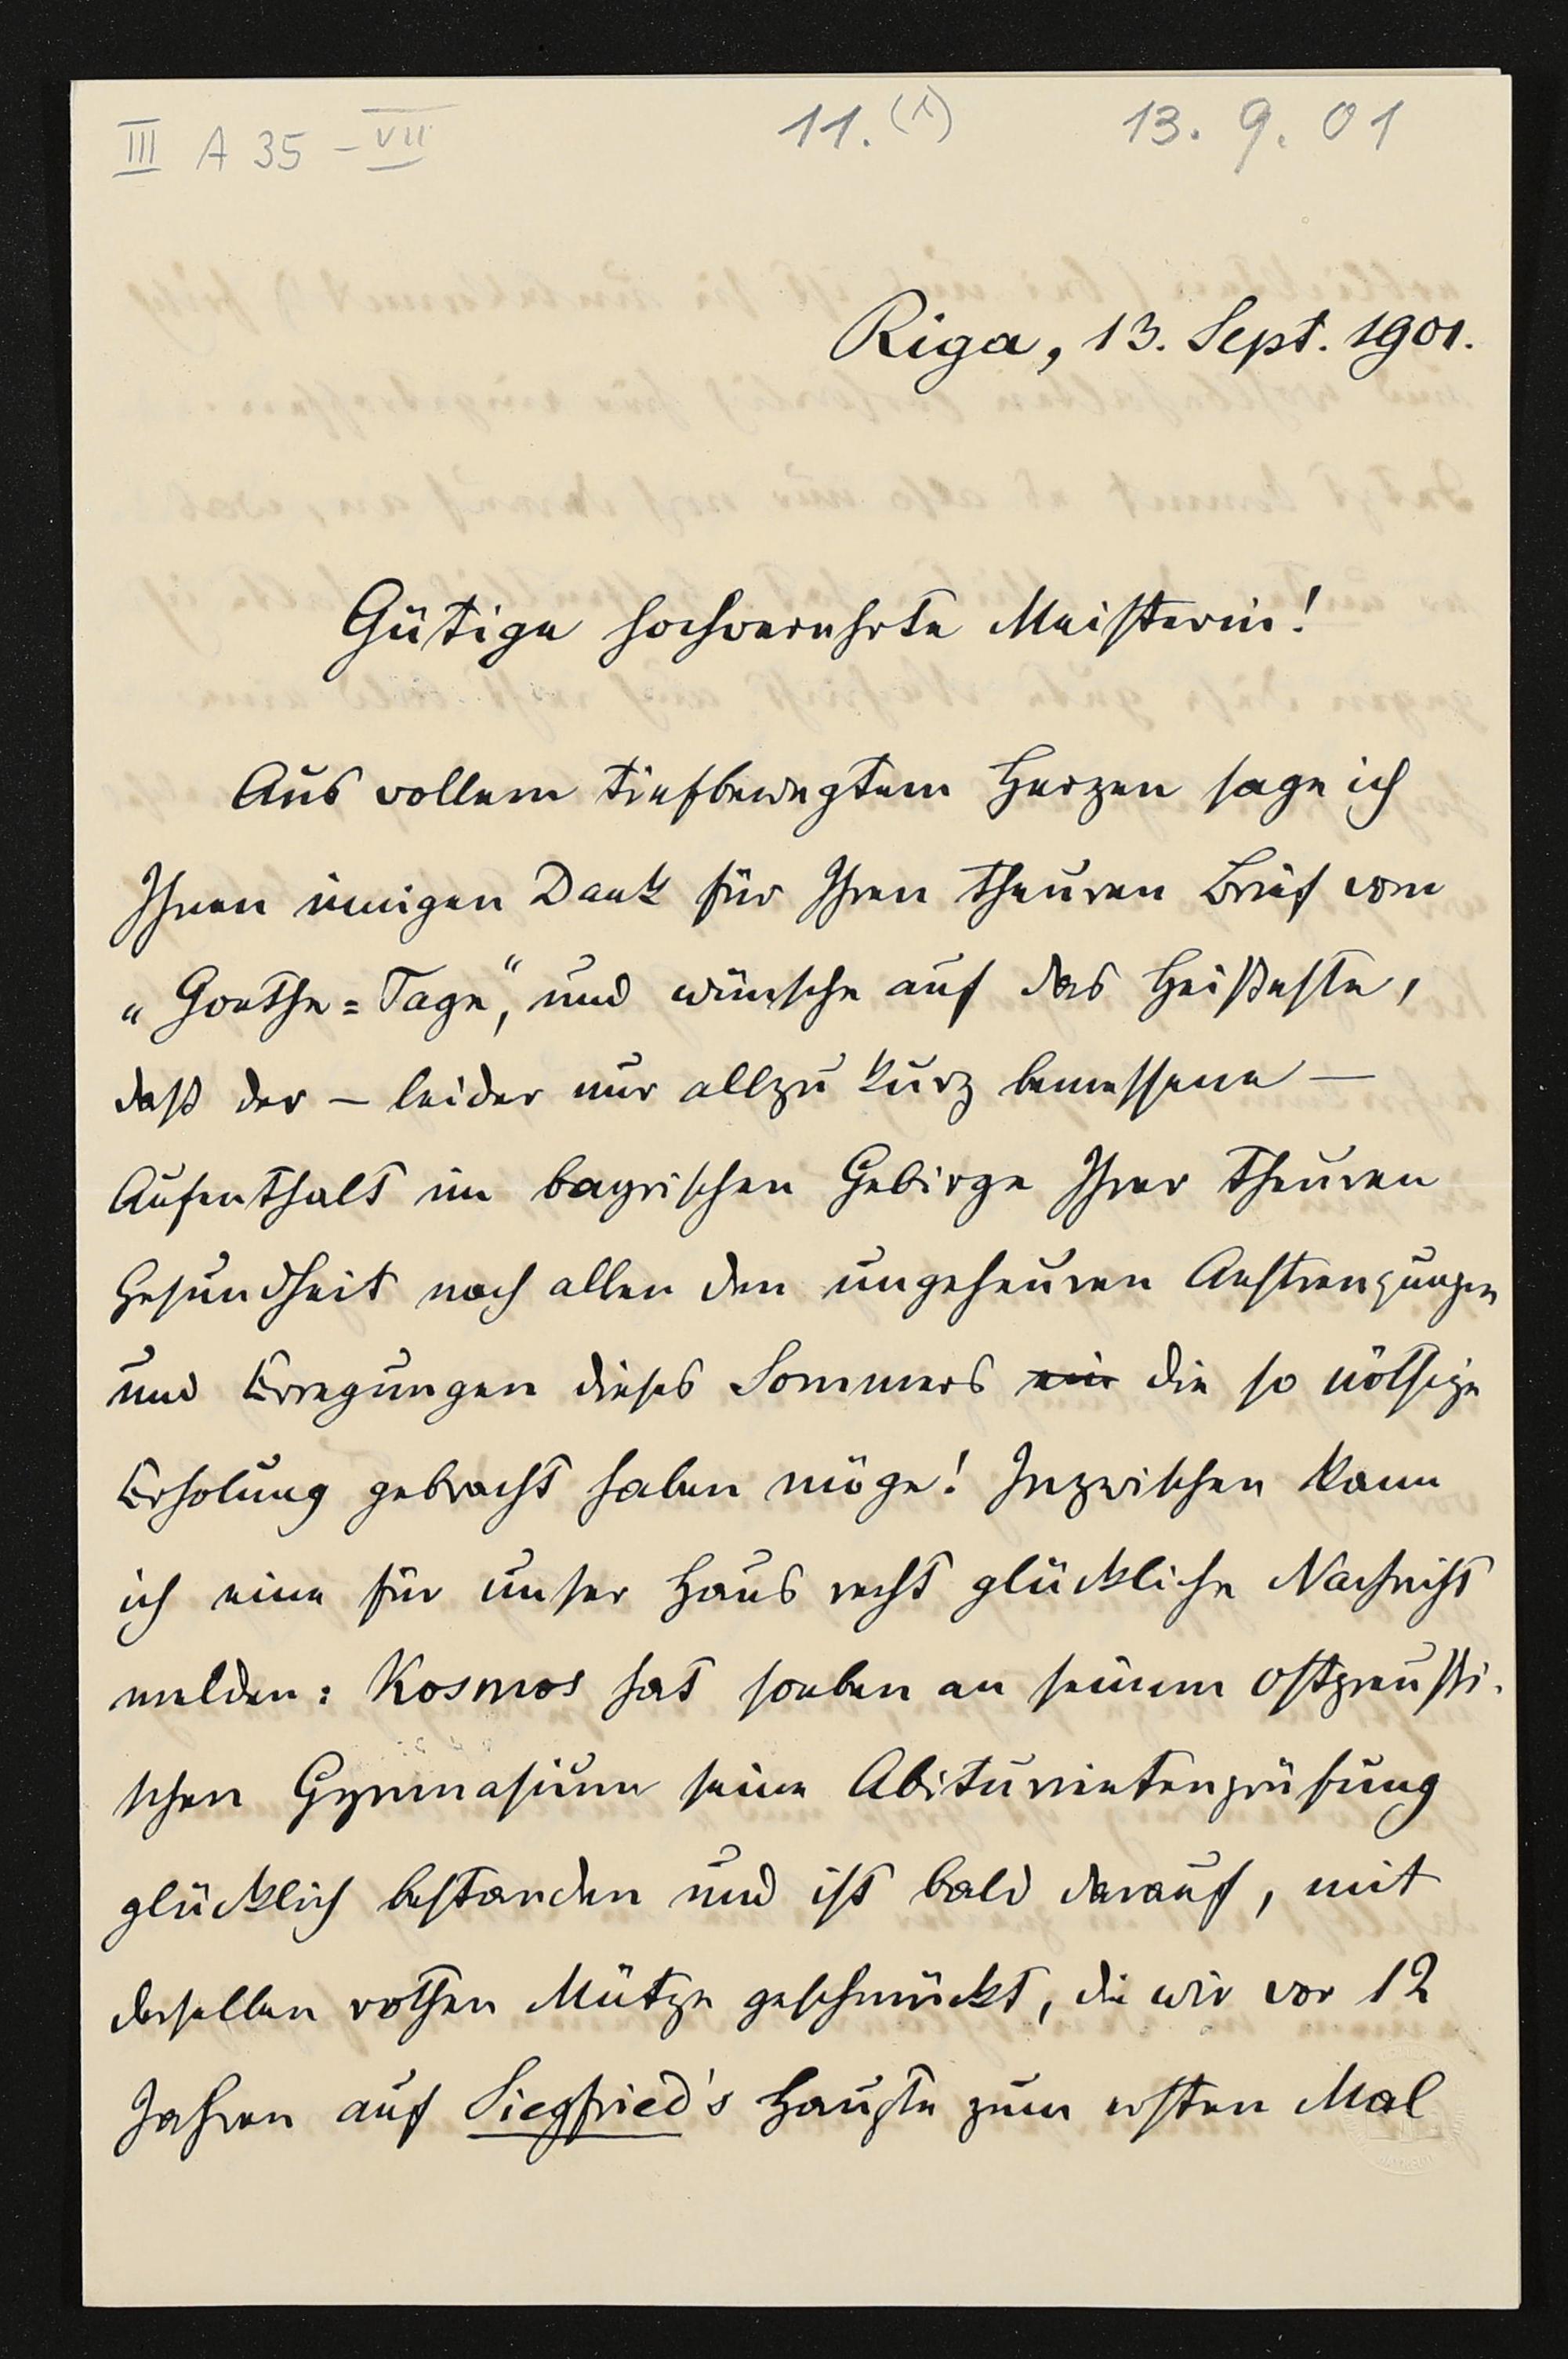 III A 35 - VII 11. (1) 13. 9. 01
Riga, 13. Sept. 1901.
Gütige hochverehrte Meisterin!
Aus vollem tiefbewegtem Herzen sage ich
Ihnen innigen Dank für Ihren theuren Brief vom
„Goethe=Tage“, und wünsche auf das Heißeste,
daß der – leider nur allzu kurz bemessene –
Aufenthalt im bayrischen Gebirge Ihrer theuren
Gesundheit nach allen den ungeheuren Anstrengungen
und Erregungen dieses Sommers die so nöthige
Erholung gebracht haben möge! Inzwischen kann
ich eine für unser Haus recht glückliche Nachricht
melden: Kosmos hat soeben an seinem ostpreußi-
schen Gymnasium seine Abiturientenprüfung
glücklich bestanden und ist bald darauf, mit
derselben rothen Mütze geschmückt, die wir vor 12
Jahren auf Siegfried's Haupte zum ersten Mal